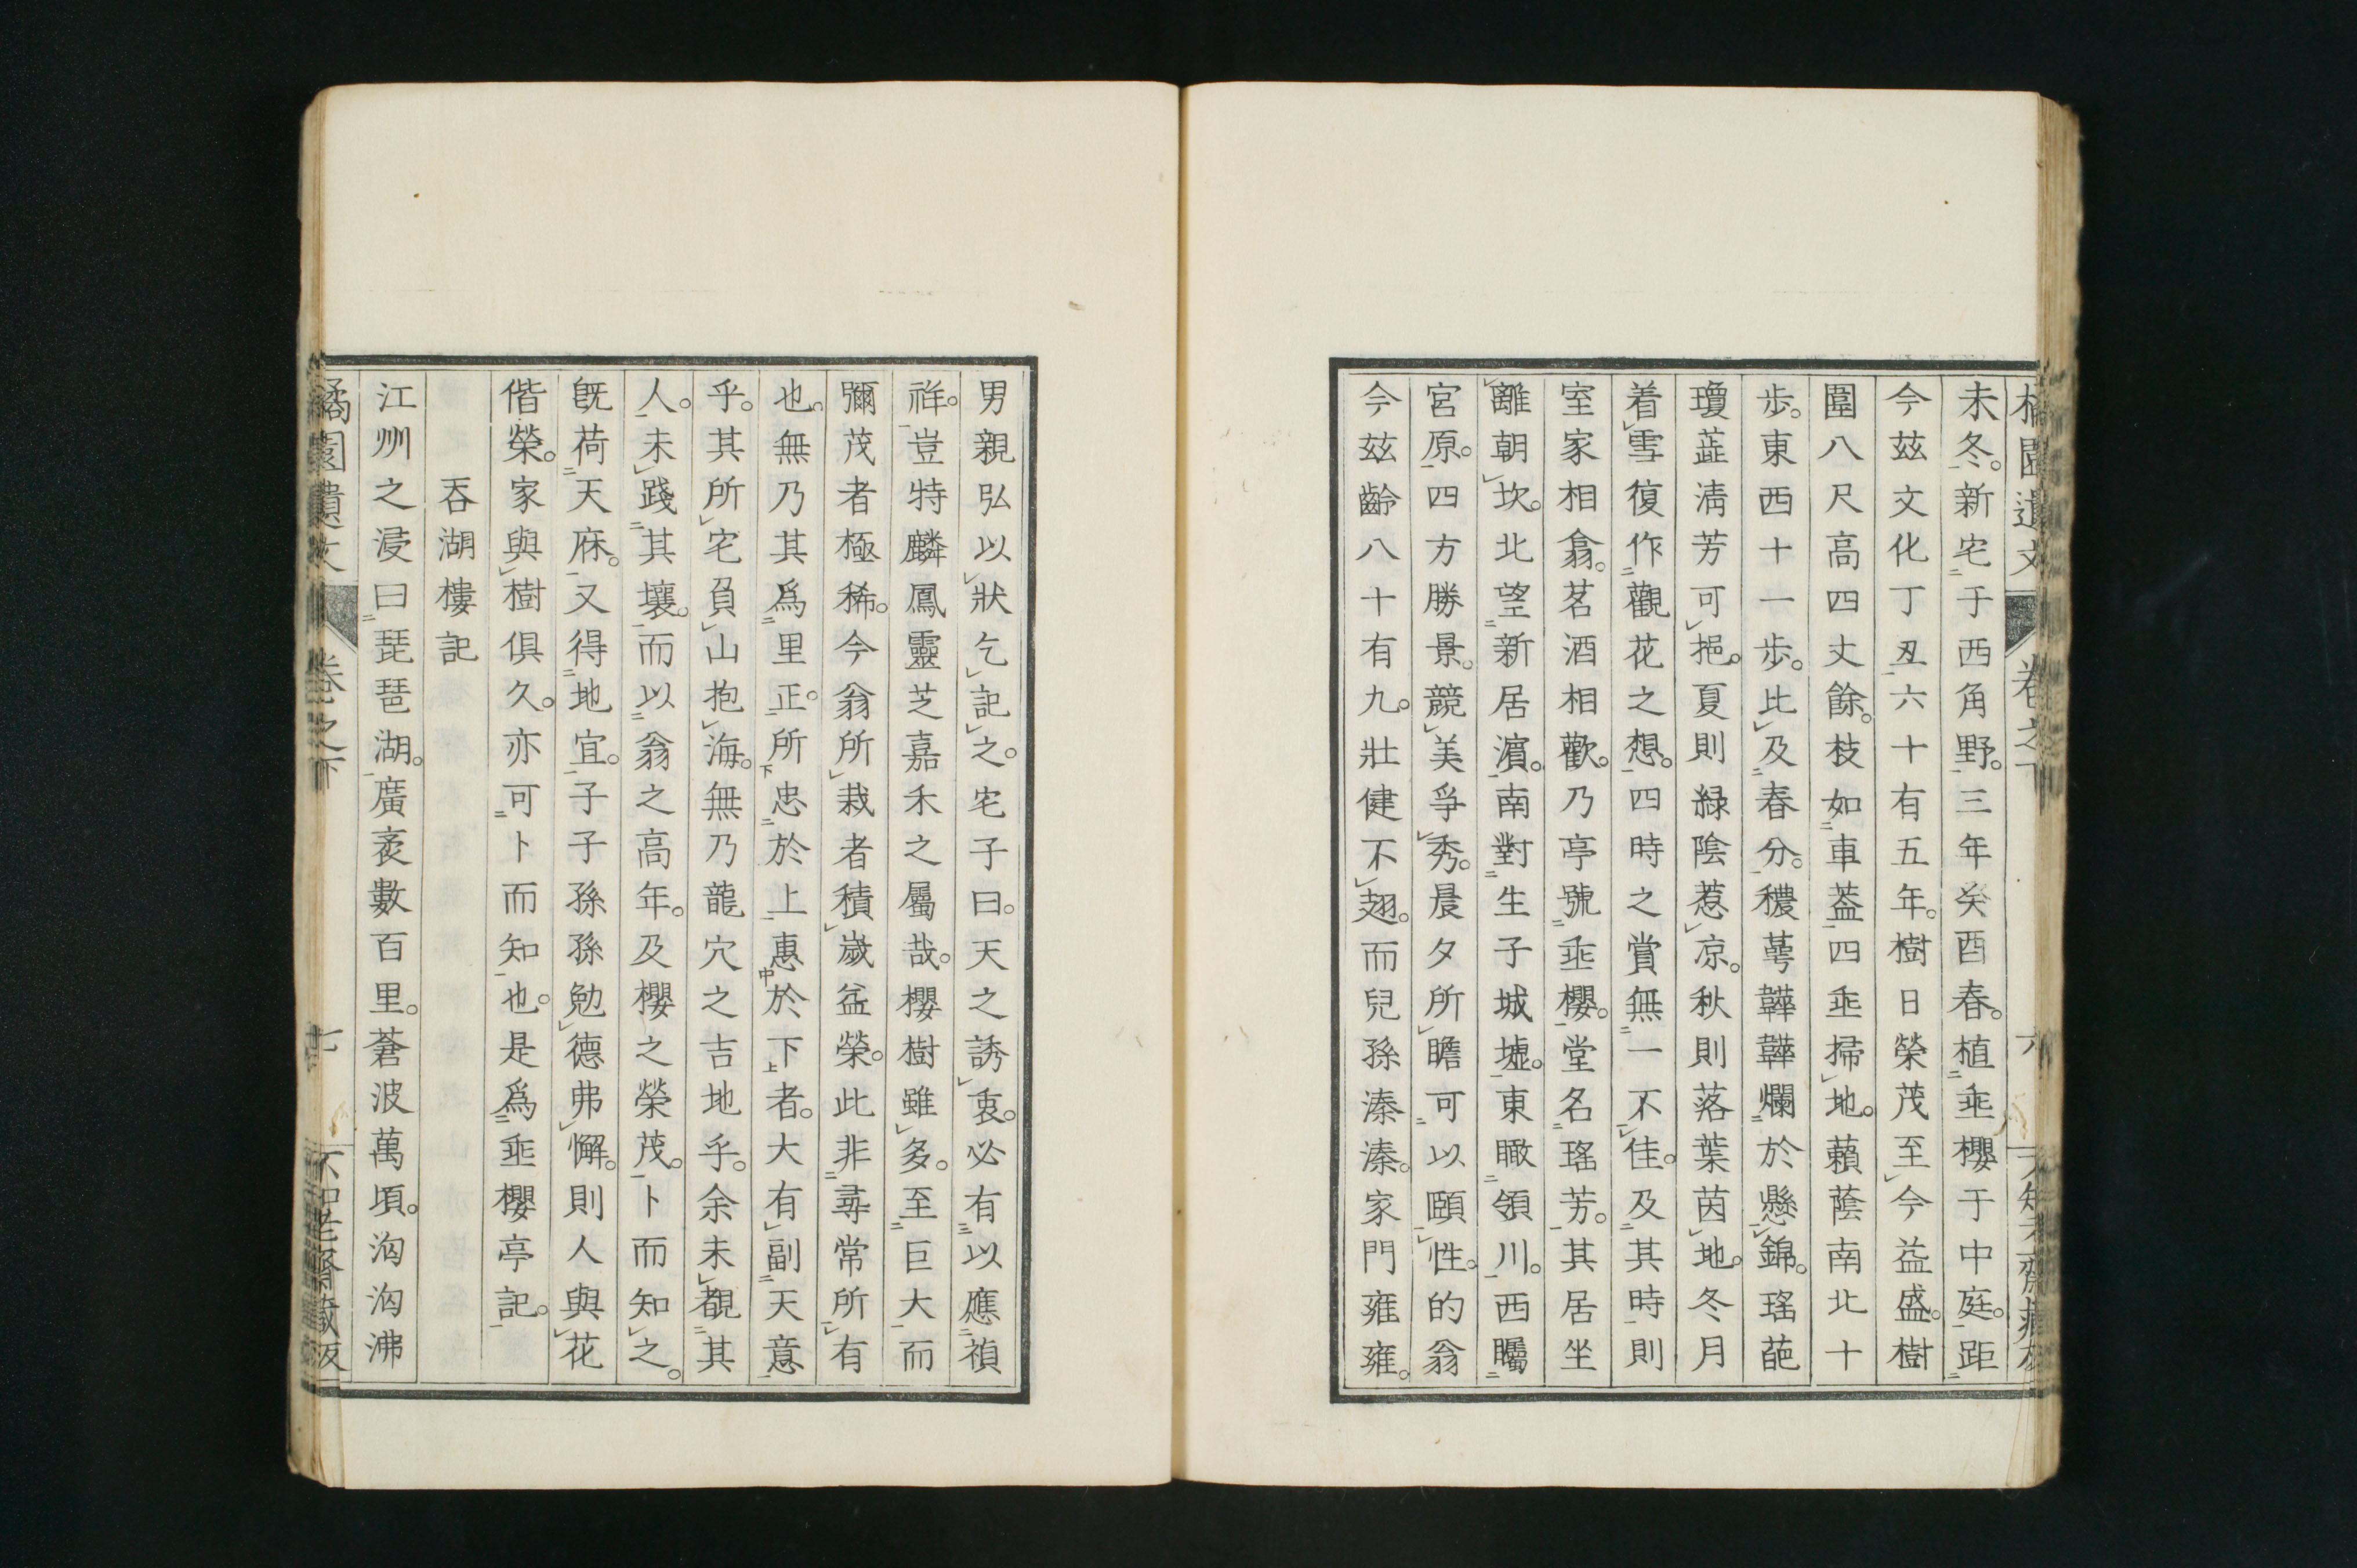 未冬。新宅于西角野。三年癸酉春。植埀櫻于中庭。距
今玆文化丁丑六十有五年。樹日榮茂至今益盛。樹
圍八尺高四丈餘。枝如車葢四埀掃地。賴蔭南北十
歩。東西十一歩。比及春分。穠蕚韡韡爛於懸錦。瑤葩
瓊蘂淸芳可挹。夏則緑陰惹凉。秋則落葉茵地。冬月
着雪復作觀花之想。四時之賞無一不佳。及其時則
室家相翕。茗酒相歡。乃亭號埀櫻。堂名瑤芳。其居坐
離朝坎。北望新居濵。南對生子城墟。東瞰領川。西矚
宮原。四方勝景。競美爭秀。晨夕所瞻可以頤性。的翁
今玆齡八十有九。壯健不𧺆。而兒孫溱溱。家門雍雍。
男親弘以狀乞記之。宅子曰。天之誘衷。必有以應禎
祥。豈特麟鳳靈芝嘉禾之屬哉。櫻樹雖多。至巨大而
彌茂者極稀。今翁所栽者積歳益榮。此非尋常所有
也。無乃其爲里正。所忠於上惠於下者。大有副天意
乎。其所宅負山抱海。無乃龍穴之吉地乎。余未覩其
人。未踐其壤。而以翁之高年。及櫻之榮茂。卜而知之。
旣荷天庥。又得地宜。子子孫孫勉德弗懈。則人與花
偕榮。家與樹俱久。亦可卜而知也。是爲埀櫻亭記。
呑湖樓記
江州之浸曰琵琶湖。廣袤數百里。蒼波萬頃。洶洶沸
橘園遺文 卷之下 七 不知老齋藏板